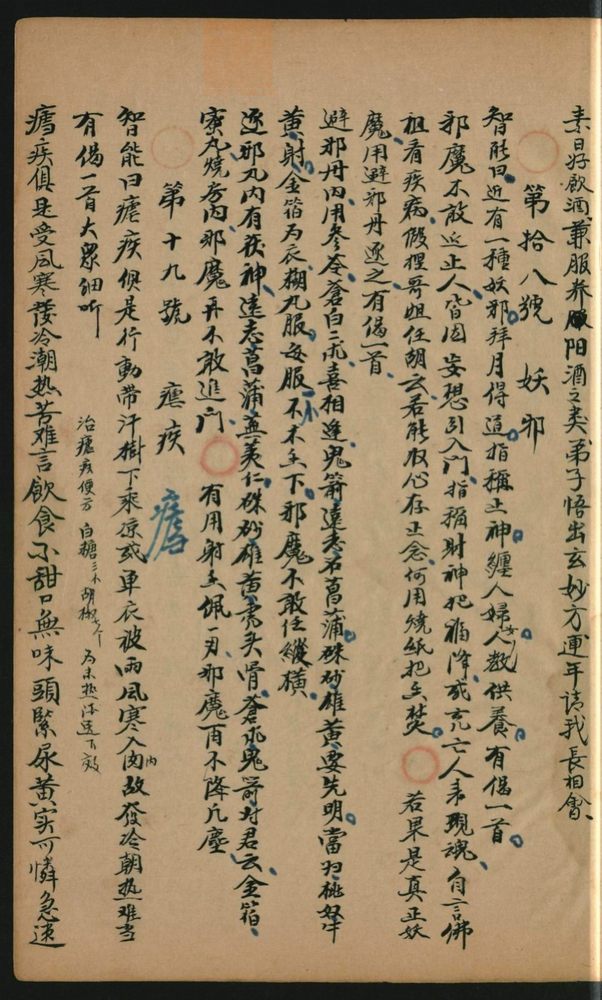 素日好飲酒兼服养阳酒之类弟子悟出玄妙方連年請我長相會
第拾八號 妖邪
智能曰近有一種妖邪拜月得道指稱正神纏人婦女人敬供養有偈一首
邪魔不敢近正人皆因妄想引入門指稱財神把福降或充亡人来現魂自言佛
祖看疾病假裡哥姐任胡云若能收心存正念何用燒紙把玄焚 若果是真正妖
魔用避邪丹逐之有偈一首
避邪丹內用參苓蒼白二朮喜相逢鬼箭遠志石菖蒲硃砂雄黃要先明當归桃奴牛
黃射金箔为衣糊丸服每服一个木玉下邪魔不敢任縱橫
逐邪丸內有茯神遠志菖蒲蕪荑仁硃砂雄黃虎头骨蒼朮鬼箭对君云金箔
蜜丸燒房內邪魔再不敢進門 有用射玉佩一刃邪魔再不降凡塵
第十九號 瘧疾 瘧
智能曰瘧疾俱是行動帶汗樹下乘凉或单衣被雨風寒入肉內故發冷朝热难当
有偈一首大眾細听 治瘧疾便方 白糖三小胡椒个 为末热酒送下效
瘧疾俱是受風寒發冷潮热苦难言飲食不甜口無味頭緊尿黃实可憐急速